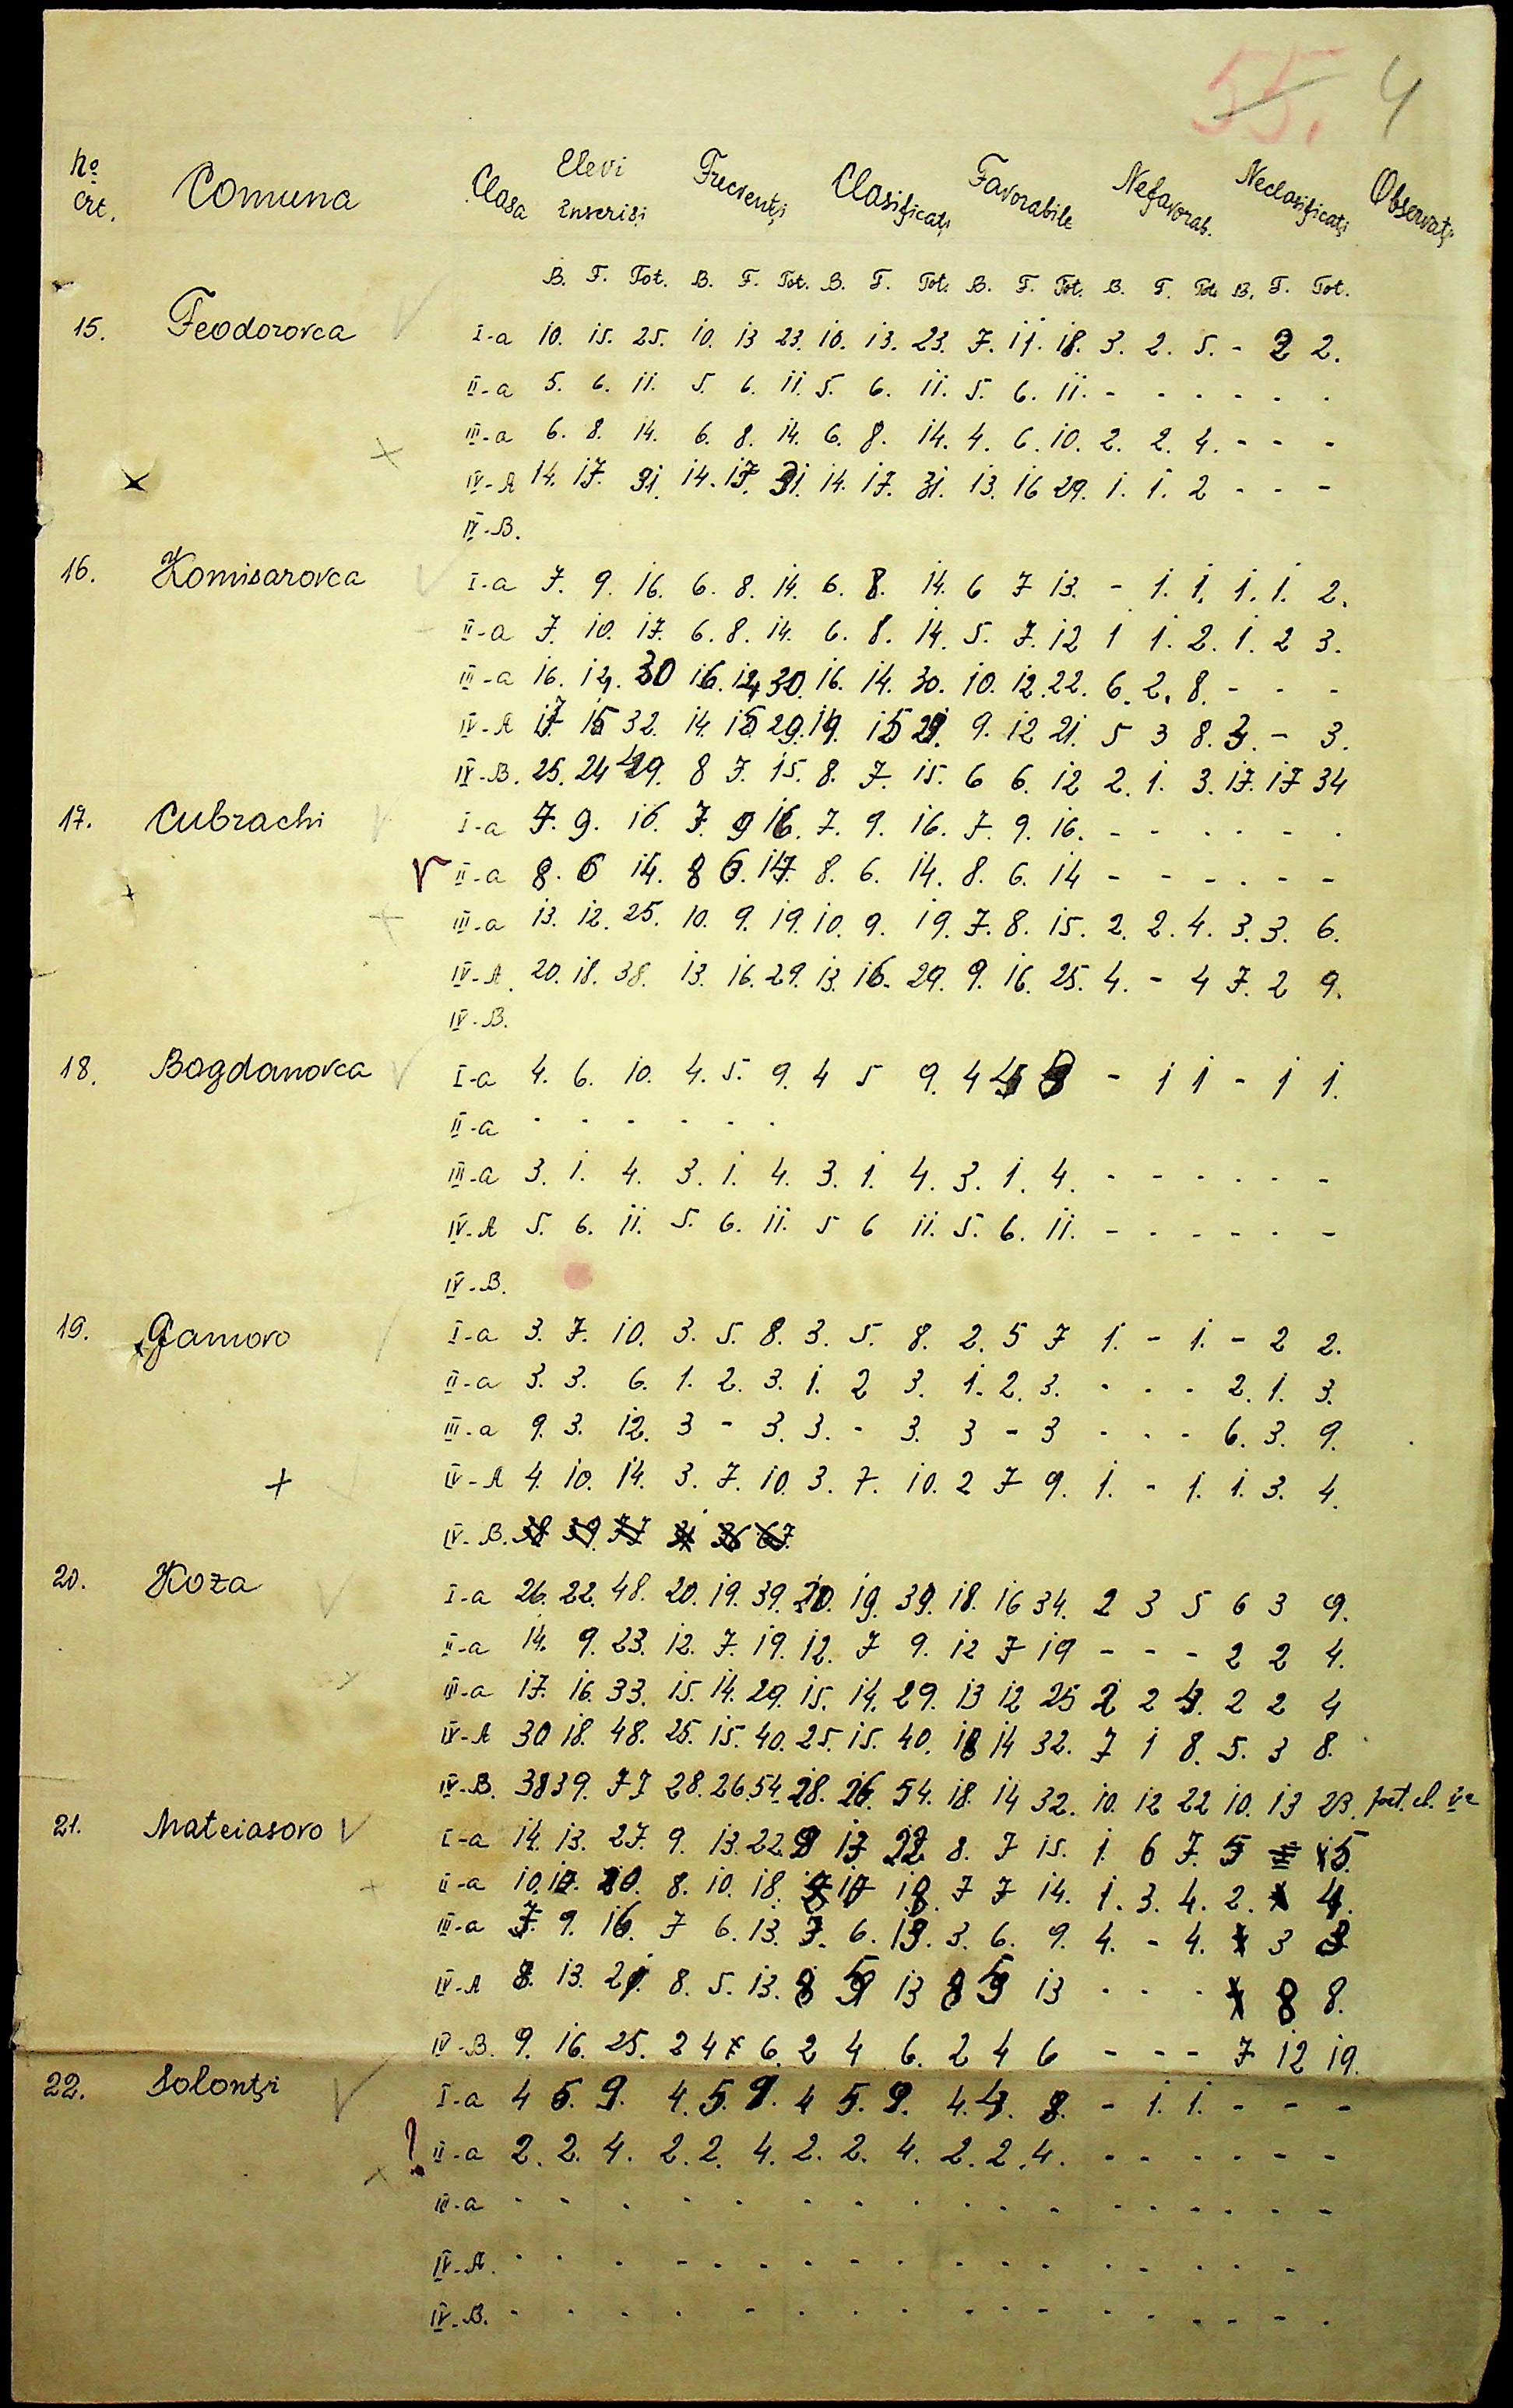 55. 4
No crt. Comuna Clasa Elevi înscriși Frecvenți Clasificați Favorabile Nefavorab. Neclasificați Observați
B. F. Tot. B. F. Tot. B. F. Tot. B. F. Tot. B. F. Tot. B. F. Tot.
15. Feodorovca I-a 10. 15. 25. 10. 13 23. 10. 13. 23. 7. 11. 18. 3. 2. 5. - 2 2.
II-a 5. 6. 11. 5. 6. 11. 5. 6. 11. 5. 6. 11. - - - - - -
III-a 6. 8. 14. 6. 8. 14. 6. 8. 14. 4. 6. 10. 2. 2. 4. - - -
IV-A 14. 17. 31. 14. 17. 31. 14. 17. 31. 13. 16 29. 1. 1. 2 - - -
IV-B.
16. Komisarovca I-a 7. 9. 16. 6. 8. 14. 6. 8. 14. 6 7 13. - 1. 1. 1. 1. 2.
II-a 7. 10. 17. 6. 8. 14. 6. 8. 14. 5. 7. 12 1 1. 2. 1. 2 3.
III-a 16. 14. 30 16. 14 30. 16. 14. 30. 10. 12. 22. 6. 2. 8. - - -
IV-A 17 15 32. 14. 15 29. 14. 15 29. 9. 12 21. 5 3 8. 3. - 3.
IV-B. 25. 24 49. 8 7. 15. 8. 7. 15. 6 6. 12 2. 1. 3. 17. 17 34
17. Cubrachi I-a 7. 9. 16. 7. 9 16. 7. 9. 16. 7. 9. 16. - - - - - -
II-a 8. 6 14. 8 6. 14. 8. 6. 14. 8. 6. 14 - - - - - -
III-a 13. 12. 25. 10. 9. 19. 10. 9. 19. 7. 8. 15. 2. 2. 4. 3. 3. 6.
IV-A. 20. 18. 38. 13. 16. 29. 13. 16. 29. 9. 16. 25. 4. - 4 7. 2 9.
IV-B.
18. Bogdanovca I-a 4. 6. 10. 4. 5. 9. 4 5 9. 4 4 8 - 1 1 - 1 1.
II-a - - - - - -
III-a 3. 1. 4. 3. 1. 4. 3. 1. 4. 3. 1. 4. - - - - - -
IV-A 5. 6. 11. 5. 6. 11. 5 6 11. 5. 6. 11. - - - - - -
IV-B.
19. Gamovo I-a 3. 7. 10. 3. 5. 8. 3. 5. 8. 2. 5 7 1. - 1. - 2 2.
II-a 3. 3. 6. 1. 2. 3. 1. 2 3. 1. 2. 3. - - - 2. 1. 3.
III-a 9. 3. 12. 3 - 3. 3. - 3. 3 - 3 - - - 6. 3. 9.
IV-A 4. 10. 14. 3. 7. 10. 3. 7. 10. 2 7 9. 1. - 1. 1. 3. 4.
IV-B. 38 39. 77 31 36 67.
20. Koza I-a 26. 22. 48. 20. 19. 39. 20. 19. 39. 18. 16 34. 2 3 5 6 3 9.
II-a 14. 9. 23. 12. 7. 19. 12. 7 9. 12 7 19 - - - 2 2 4.
III-a 17. 16. 33. 15. 14. 29. 15. 14. 29. 13 12 25 2 2 4. 2 2 4
IV-A 30 18. 48. 25. 15. 40. 25. 15. 40. 18 14 32. 7 1 8. 5. 3 8.
IV-B. 38 39. 77 28. 26. 54. 28. 26. 54. 18. 14 32. 10. 12 22 10. 13 23.
21. Mateiasovo I-a 14. 13. 27. 9. 13. 22. 9 13 22 8. 7 15. 1. 6 7. 5 - 5.
II-a 10. 10. 20. 8. 10. 18. 8 10 18. 7 7 14. 1. 3. 4. 2. 4.
III-a 7. 9. 16. 7 6. 13. 7. 6. 13. 3. 6. 9. 4. - 4. 3 3
IV-A 8. 13. 21. 8. 5. 13. 8 5 13 8 5 13 - - - 8 8.
IV-B. 9. 16. 25. 2 4 6. 2 4 6. 2 4 6 - - - 7 12 19.
22. Solonți I-a 4 5. 9. 4. 5. 9. 4 5. 9. 4. 4. 8. - 1. 1. - - -
II-a 2. 2. 4. 2. 2. 4. 2. 2. 4. 2. 2. 4. - - - - - -
III-a - - - - - - - - - - - - - - - - - -
IV-A. - - - - - - - - - - - - - - - - - -
IV-B. - - - - - - - - - - - - - - - - - -